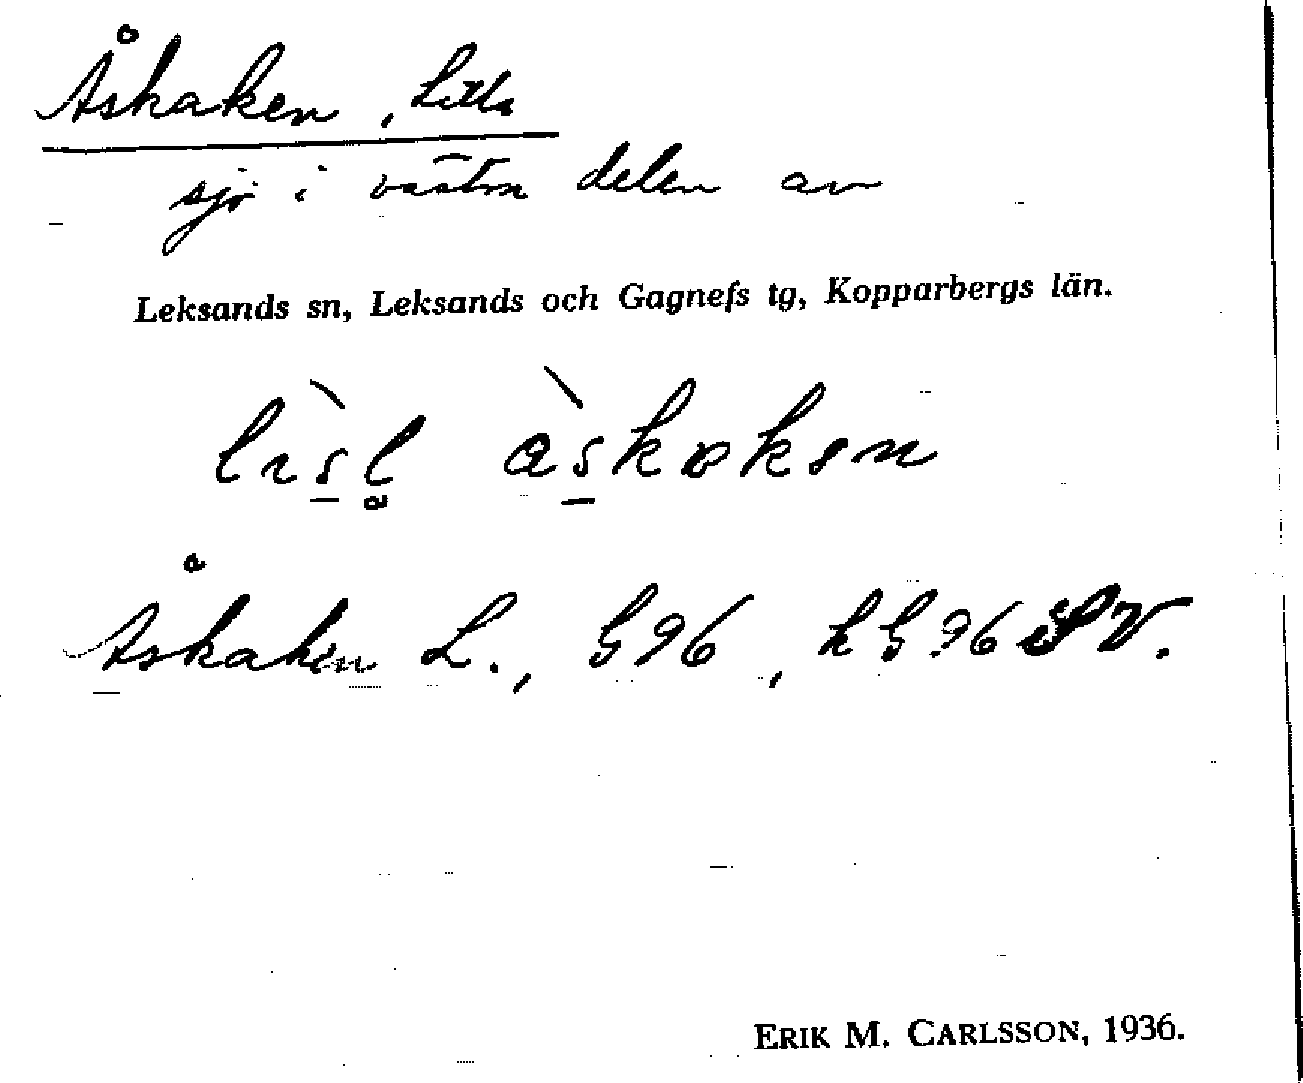 Åskaken, Lilla
sjö i västra delen av
Leksands sn, Leksands och Gagnefs tg, Kopparbergs län.
Åskaken L., G96, LG96 SV.
ERIK M. CARLSSON, 1936.